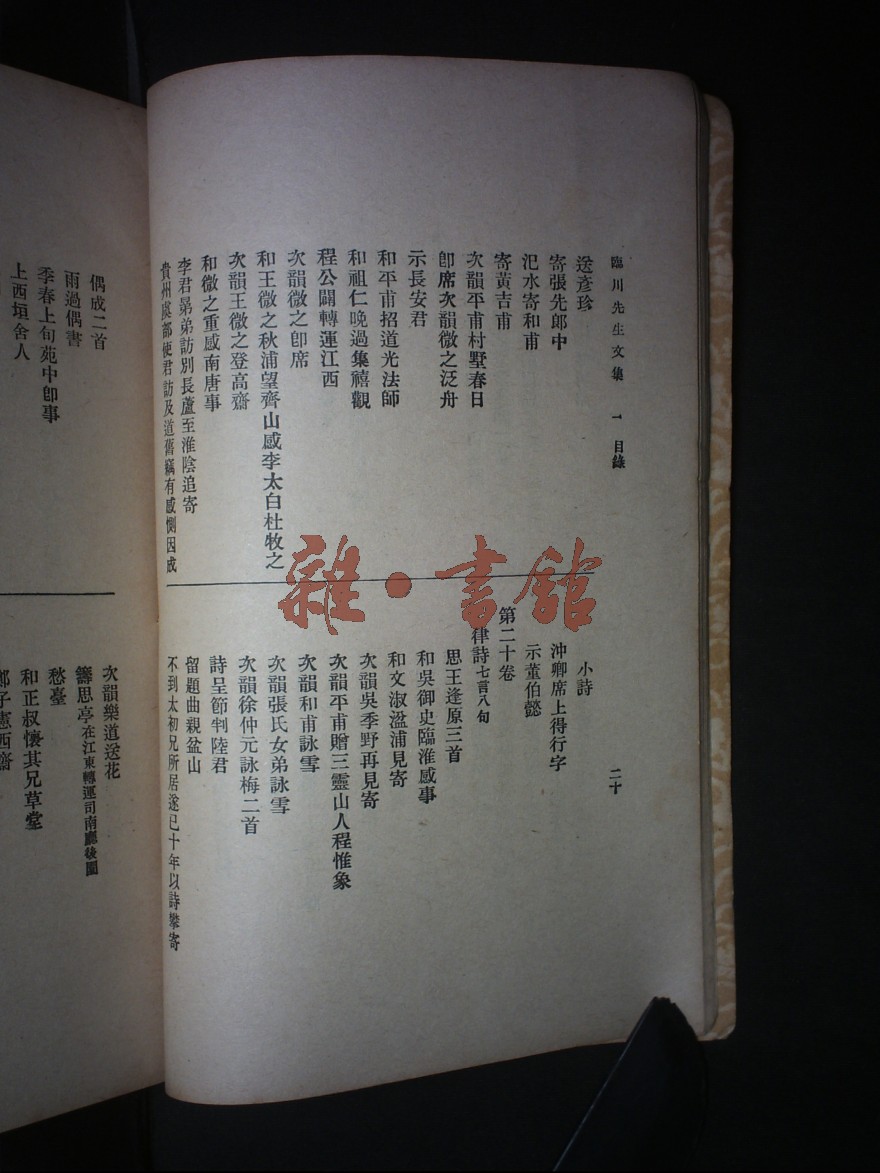 臨川先生文集 一 目錄
二十
送彥珍
寄張先郎中
氾水寄和甫
寄黃吉甫
次韻平甫村墅春日
卽席次韻微之泛舟
示長安君
和平甫招道光法師
和祖仁晚過集禧觀
程公闢轉運江西
次韻微之卽席
和王微之秋浦望齊山感李太白杜牧之
次韻王微之登高齋
和微之重感南唐事
李君昴弟訪別長蘆至淮陰追寄
貴州虞部使君訪及道舊竊有感惻因成
小詩
沖卿席上得行字
示董伯懿
第二十卷
律詩七言八句
思王逢原三首
和吳御史臨淮感事
和文淑湓浦見寄
次韻吳季野再見寄
次韻平甫贈三靈山人程惟象
次韻和甫詠雪
次韻張氏女弟詠雪
次韻徐仲元詠梅二首
詩呈節判陸君
留題曲親盆山
不到太初兄所居遂已十年以詩攀寄
偶成二首
雨過偶書
季春上旬苑中卽事
上西垣舍人
次韻樂道送花
籌思亭在江東轉運司南廳後園
愁臺
和正叔懷其兄草堂
郢子憲西齋
雜·書館